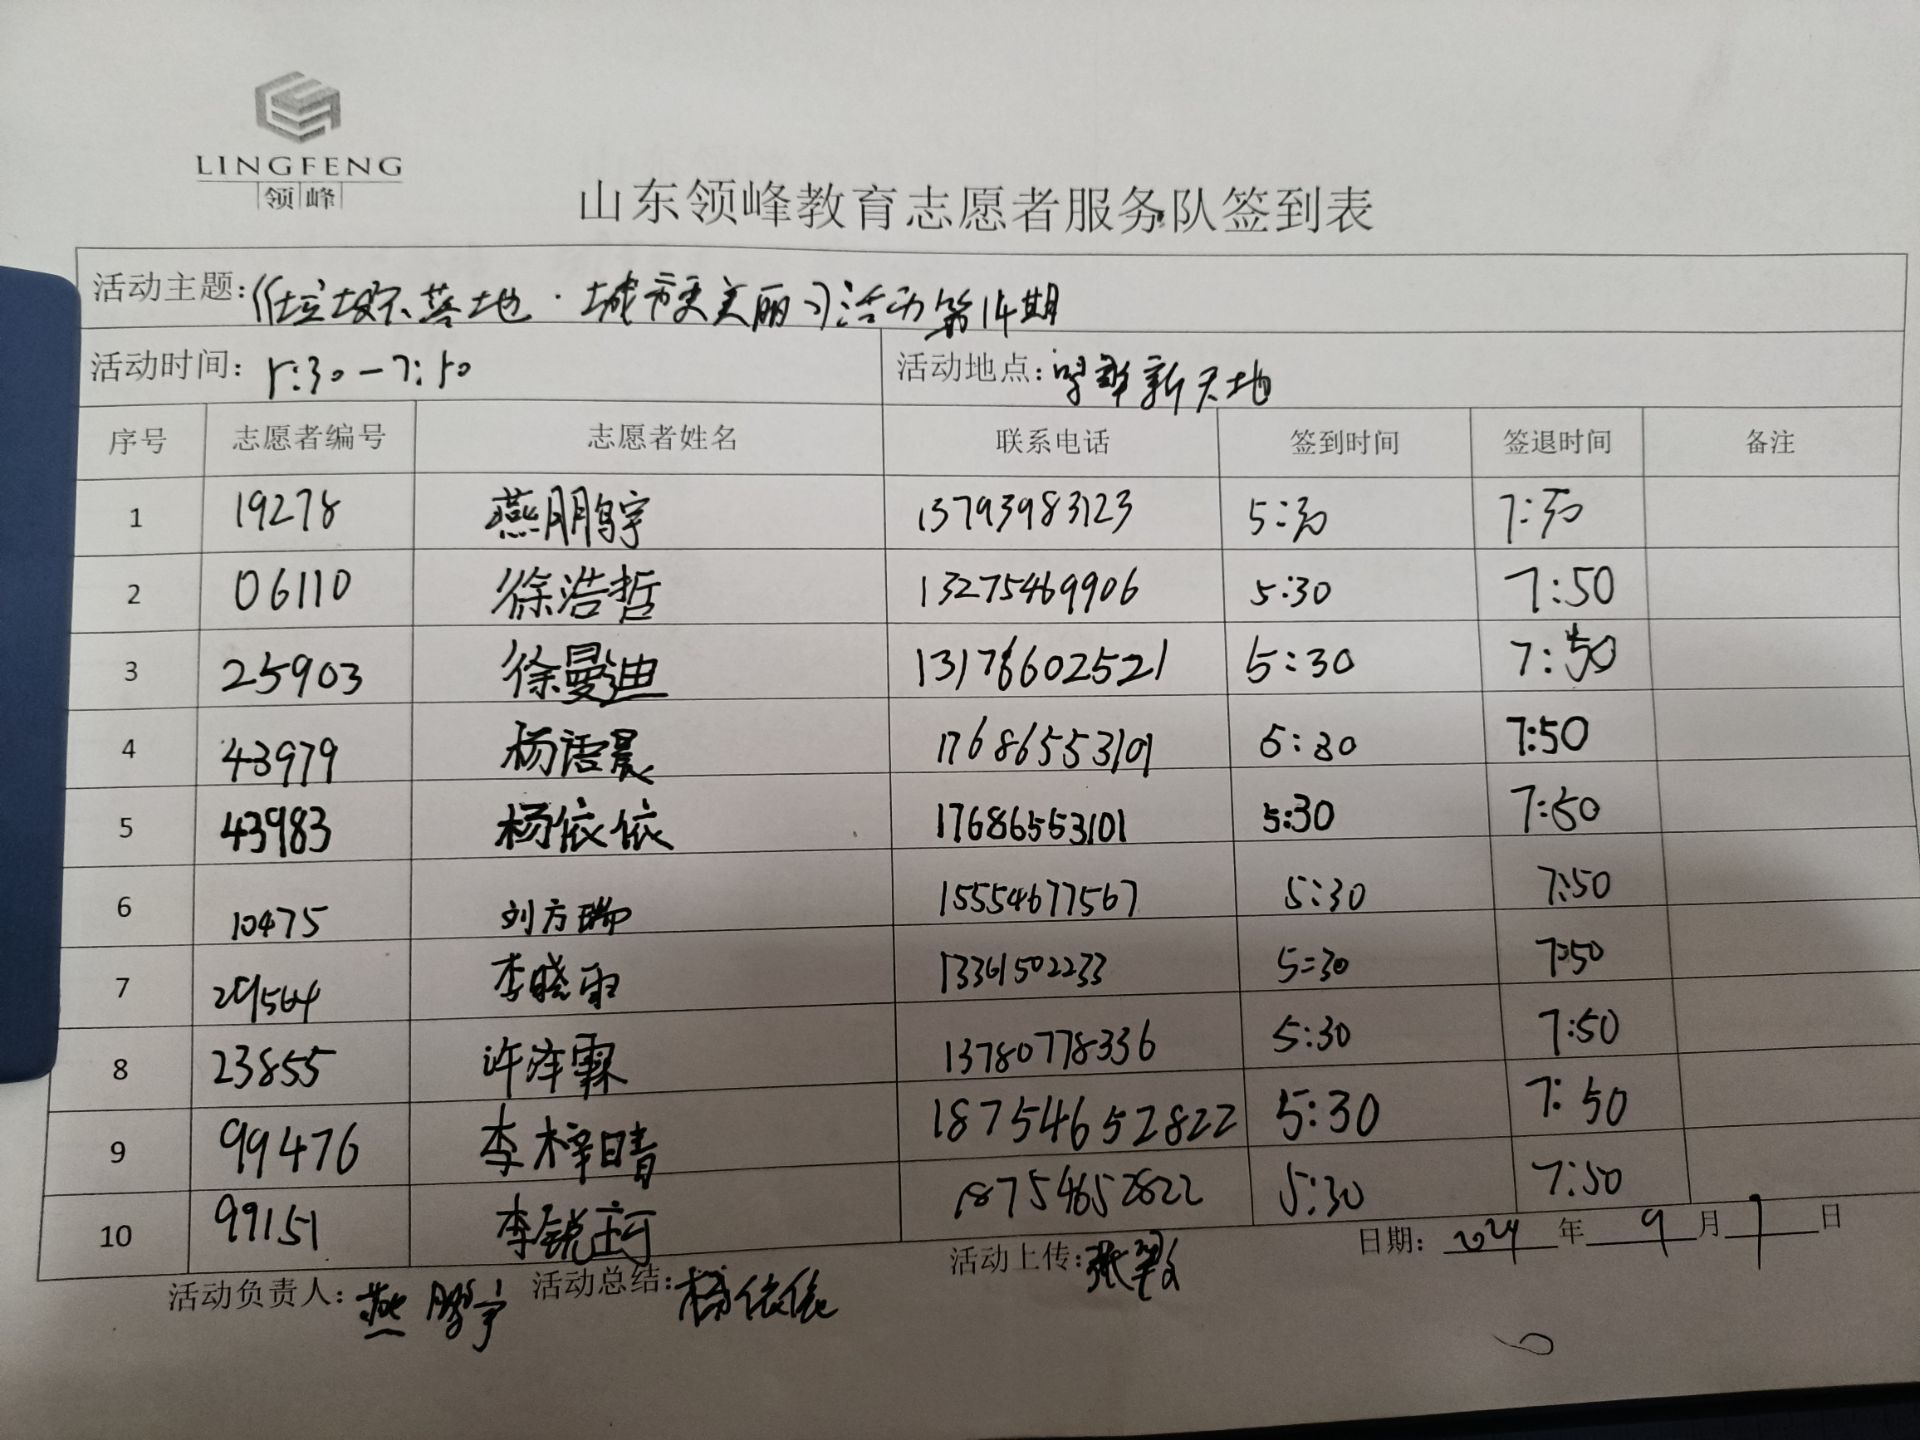 LINGFENG
领峰
山东领峰教育志愿者服务队签到表
活动主题:《垃圾不落地·城市更美丽》活动第14期
活动时间: 5:30-7:50 活动地点: 华新天地
序号 志愿者编号 志愿者姓名 联系电话 签到时间 签退时间 备注
1 19278 燕鹏宇 13793983123 5:30 7:50
2 06110 徐浩哲 13275469906 5:30 7:50
3 25903 徐曼迪 13176602521 5:30 7:50
4 43979 杨语晨 17686553101 5:30 7:50
5 43983 杨依依 17686553101 5:30 7:50
6 10475 刘方瑞 15554677567 5:30 7:50
7 29564 李晓雨 13361502233 5:30 7:50
8 23855 许泽霖 13780778336 5:30 7:50
9 99476 李梓晴 18754652822 5:30 7:50
10 99151 李锐 18754652822 5:30 7:50
活动负责人: 燕鹏宇 活动总结: 杨依依 活动上传: 张 日期: 2024 年 9 月 7 日